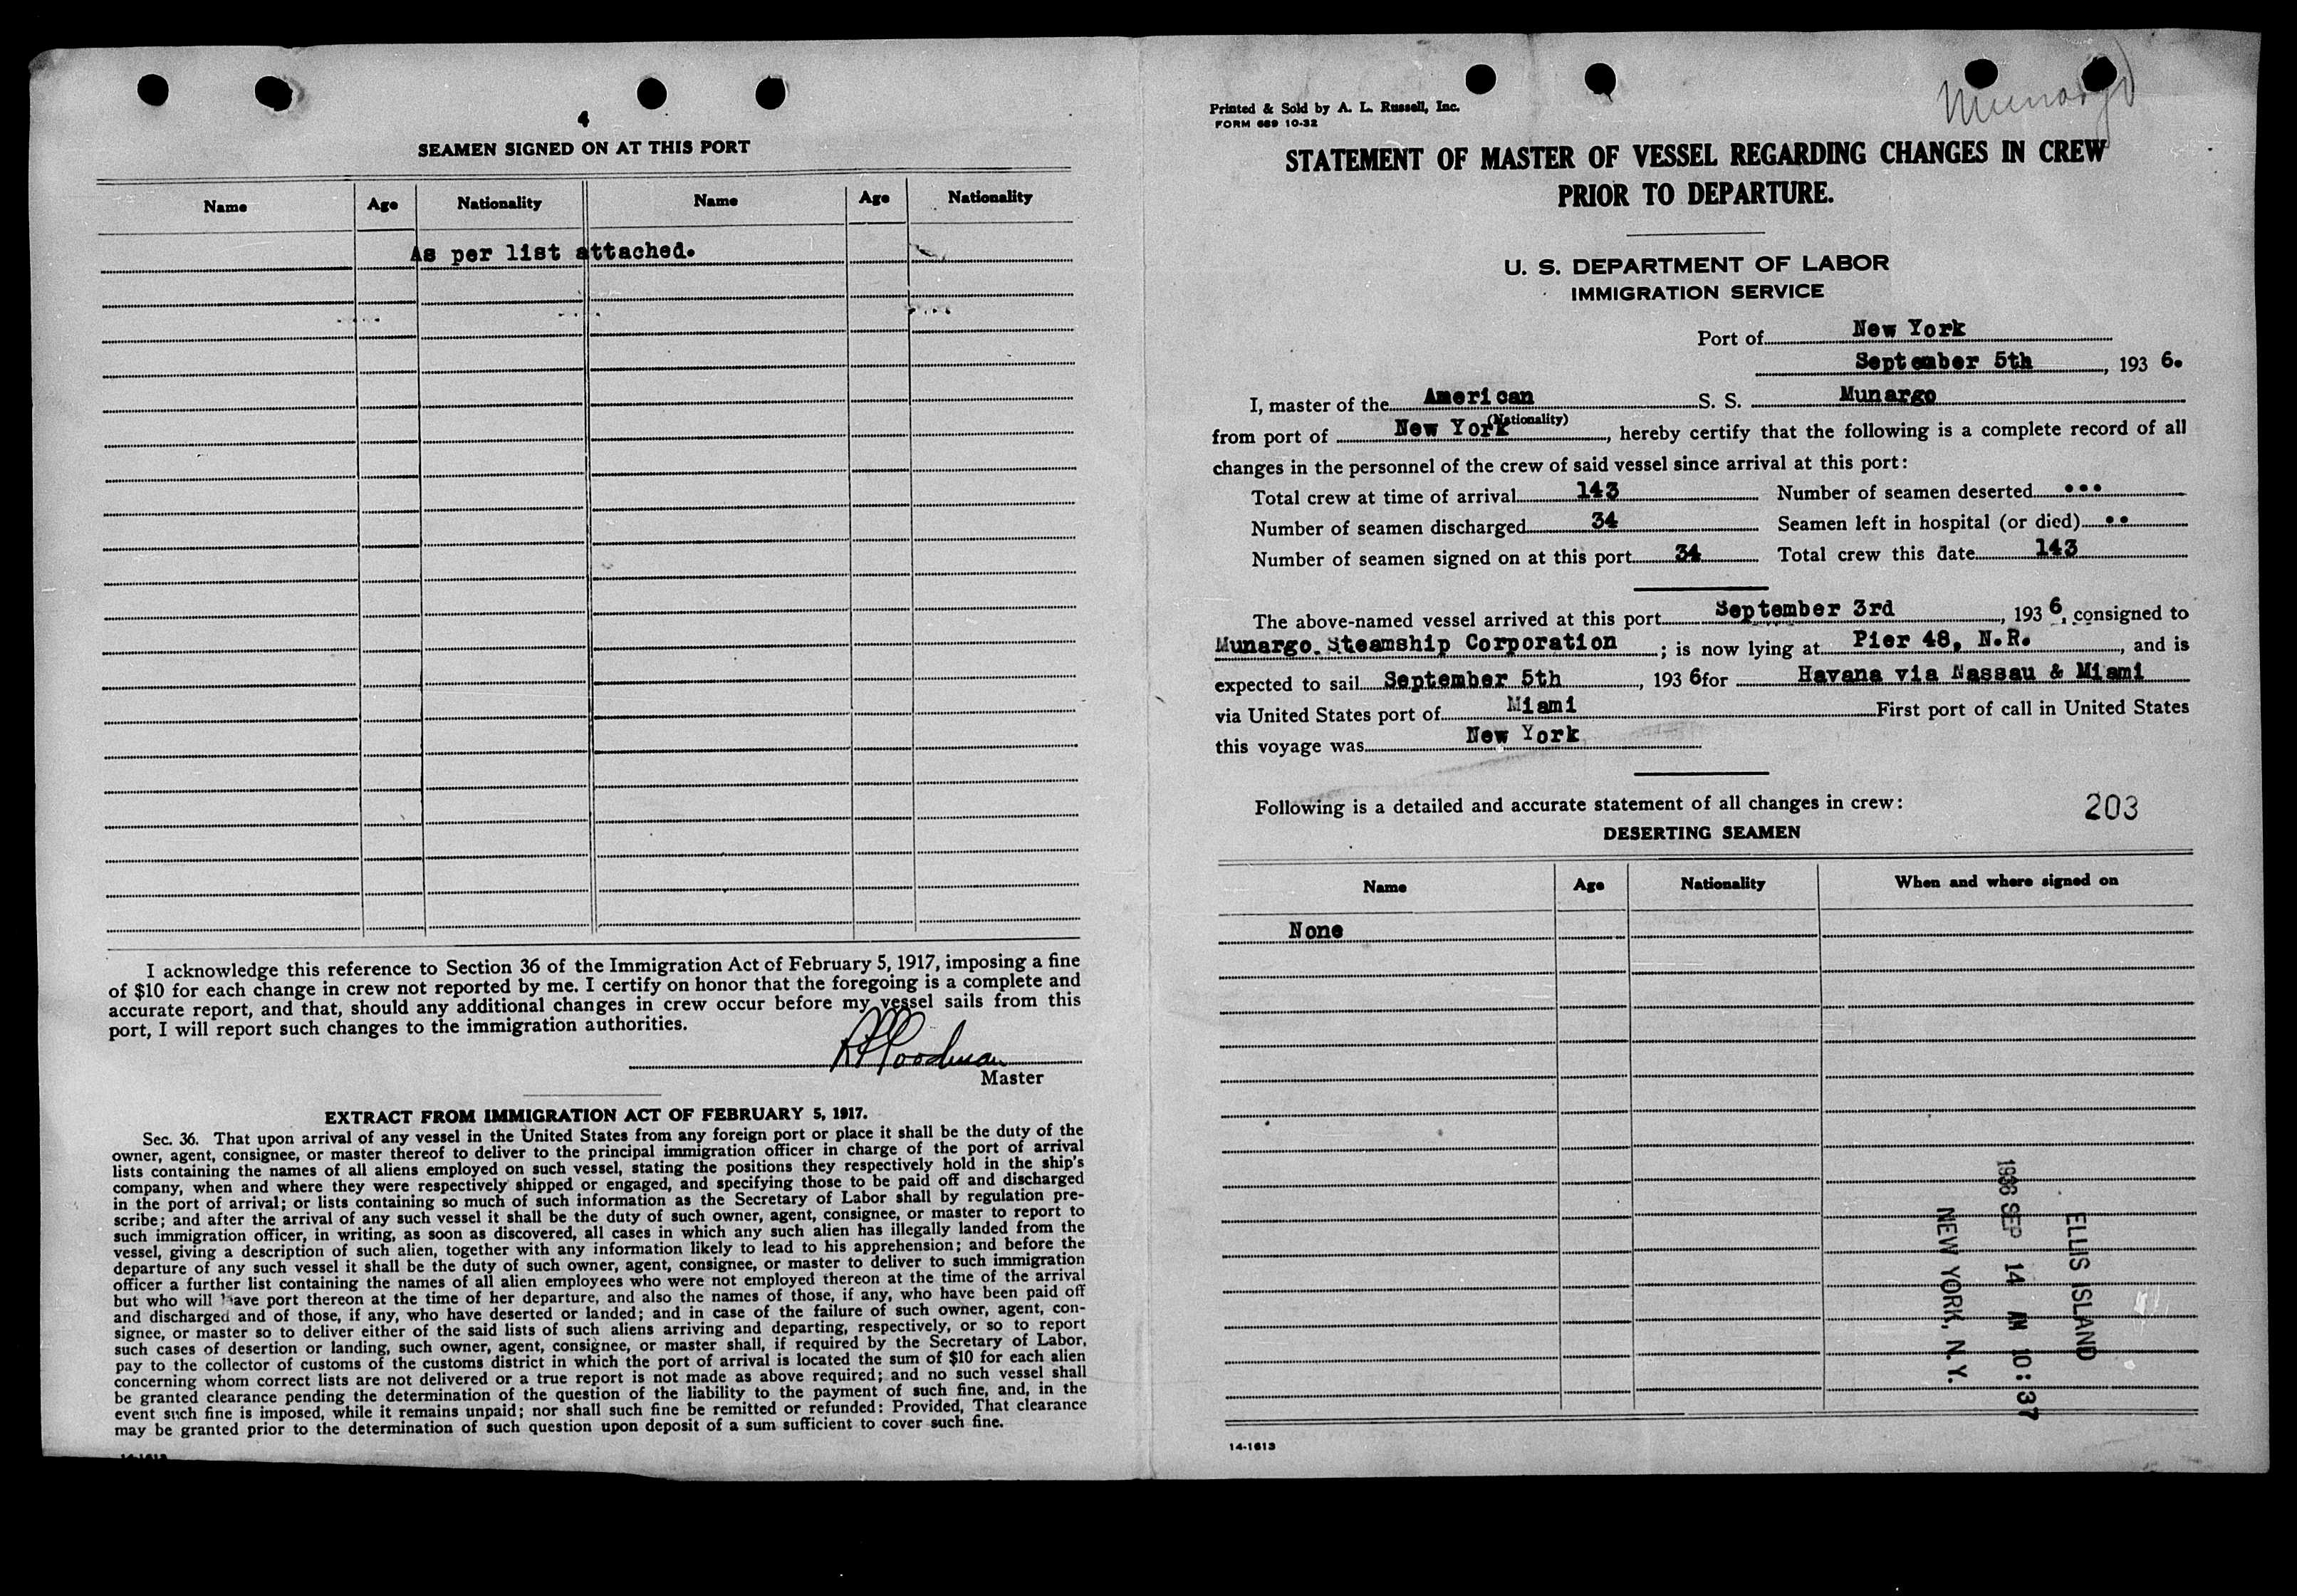 4
SEAMEN SIGNED ON AT THIS PORT
Name Age Nationality Name Age Nationality
As per list attached.
I acknowledge this reference to Section 36 of the Immigration Act of February 5, 1917, imposing a fine
of $10 for each change in crew not reported by me. I certify on honor that the foregoing is a complete and
accurate report, and that, should any additional changes in crew occur before my vessel sails from this
port, I will report such changes to the immigration authorities.
Master
EXTRACT FROM IMMIGRATION ACT OF FEBRUARY 5, 1917.
Sec. 36. That upon arrival of any vessel in the United States from any foreign port or place it shall be the duty of the
owner, agent, consignee, or master thereof to deliver to the principal immigration officer in charge of the port of arrival
lists containing the names of all aliens employed on such vessel, stating the positions they respectively hold in the ship's
company, when and where they were respectively shipped or engaged, and specifying those to be paid off and discharged
in the port of arrival; or lists containing so much of such information as the Secretary of Labor shall by regulation pre-
scribe; and after the arrival of any such vessel it shall be the duty of such owner, agent, consignee, or master to report to
such immigration officer, in writing, as soon as discovered, all cases in which any such alien has illegally landed from the
vessel, giving a description of such alien, together with any information likely to lead to his apprehension; and before the
departure of any such vessel it shall be the duty of such owner, agent, consignee, or master to deliver to such immigration
officer a further list containing the names of all alien employees who were not employed thereon at the time of the arrival
but who will leave port thereon at the time of her departure, and also the names of those, if any, who have been paid off
and discharged and of those, if any, who have deserted or landed; and in case of the failure of such owner, agent, con-
signee, or master so to deliver either of the said lists of such aliens arriving and departing, respectively, or so to report
such cases of desertion or landing, such owner, agent, consignee, or master shall, if required by the Secretary of Labor,
pay to the collector of customs of the customs district in which the port of arrival is located the sum of $10 for each alien
concerning whom correct lists are not delivered or a true report is not made as above required; and no such vessel shall
be granted clearance pending the determination of the question of the liability to the payment of such fine, and, in the
event such fine is imposed, while it remains unpaid; nor shall such fine be remitted or refunded: Provided, That clearance
may be granted prior to the determination of such question upon deposit of a sum sufficient to cover such fine.
14-1613
Munargo
Printed & Sold by A. L. Russell, Inc.
FORM 689 10-32
STATEMENT OF MASTER OF VESSEL REGARDING CHANGES IN CREW
PRIOR TO DEPARTURE.
U. S. DEPARTMENT OF LABOR
IMMIGRATION SERVICE
Port of New York
September 5th, 1936.
I, master of the American S. S. Munargo
(Nationality)
from port of New York, hereby certify that the following is a complete record of all
changes in the personnel of the crew of said vessel since arrival at this port:
Total crew at time of arrival 143 Number of seamen deserted ...
Number of seamen discharged 34 Seamen left in hospital (or died) ..
Number of seamen signed on at this port 34 Total crew this date 143
The above-named vessel arrived at this port September 3rd, 1936, consigned to
Munargo Steamship Corporation; is now lying at Pier 48, N.R., and is
expected to sail September 5th, 1936 for Havana via Nassau & Miami
via United States port of Miami First port of call in United States
this voyage was New York
Following is a detailed and accurate statement of all changes in crew: 203
DESERTING SEAMEN
Name Age Nationality When and where signed on
None
ELLIS ISLAND
1936 SEP 14 AM 10:37
NEW YORK, N.Y.
14-1613